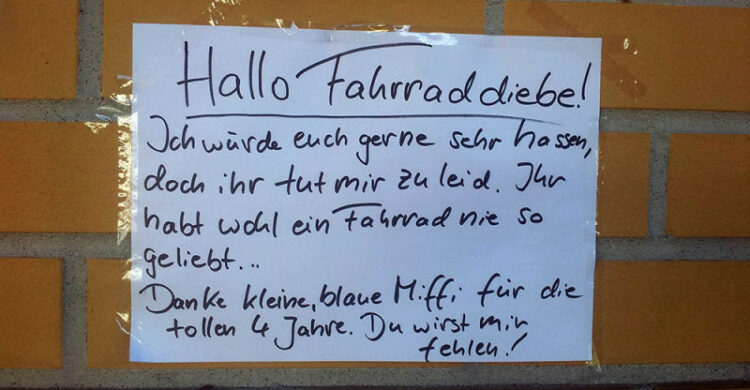 Hallo Fahrraddiebe!
Ich würde euch gerne sehr hassen,
doch ihr tut mir zu leid. Ihr
habt wohl ein Fahrrad nie so
geliebt...
Danke kleine, blaue Miffi für die
tollen 4 Jahre. Du wirst mir
fehlen!